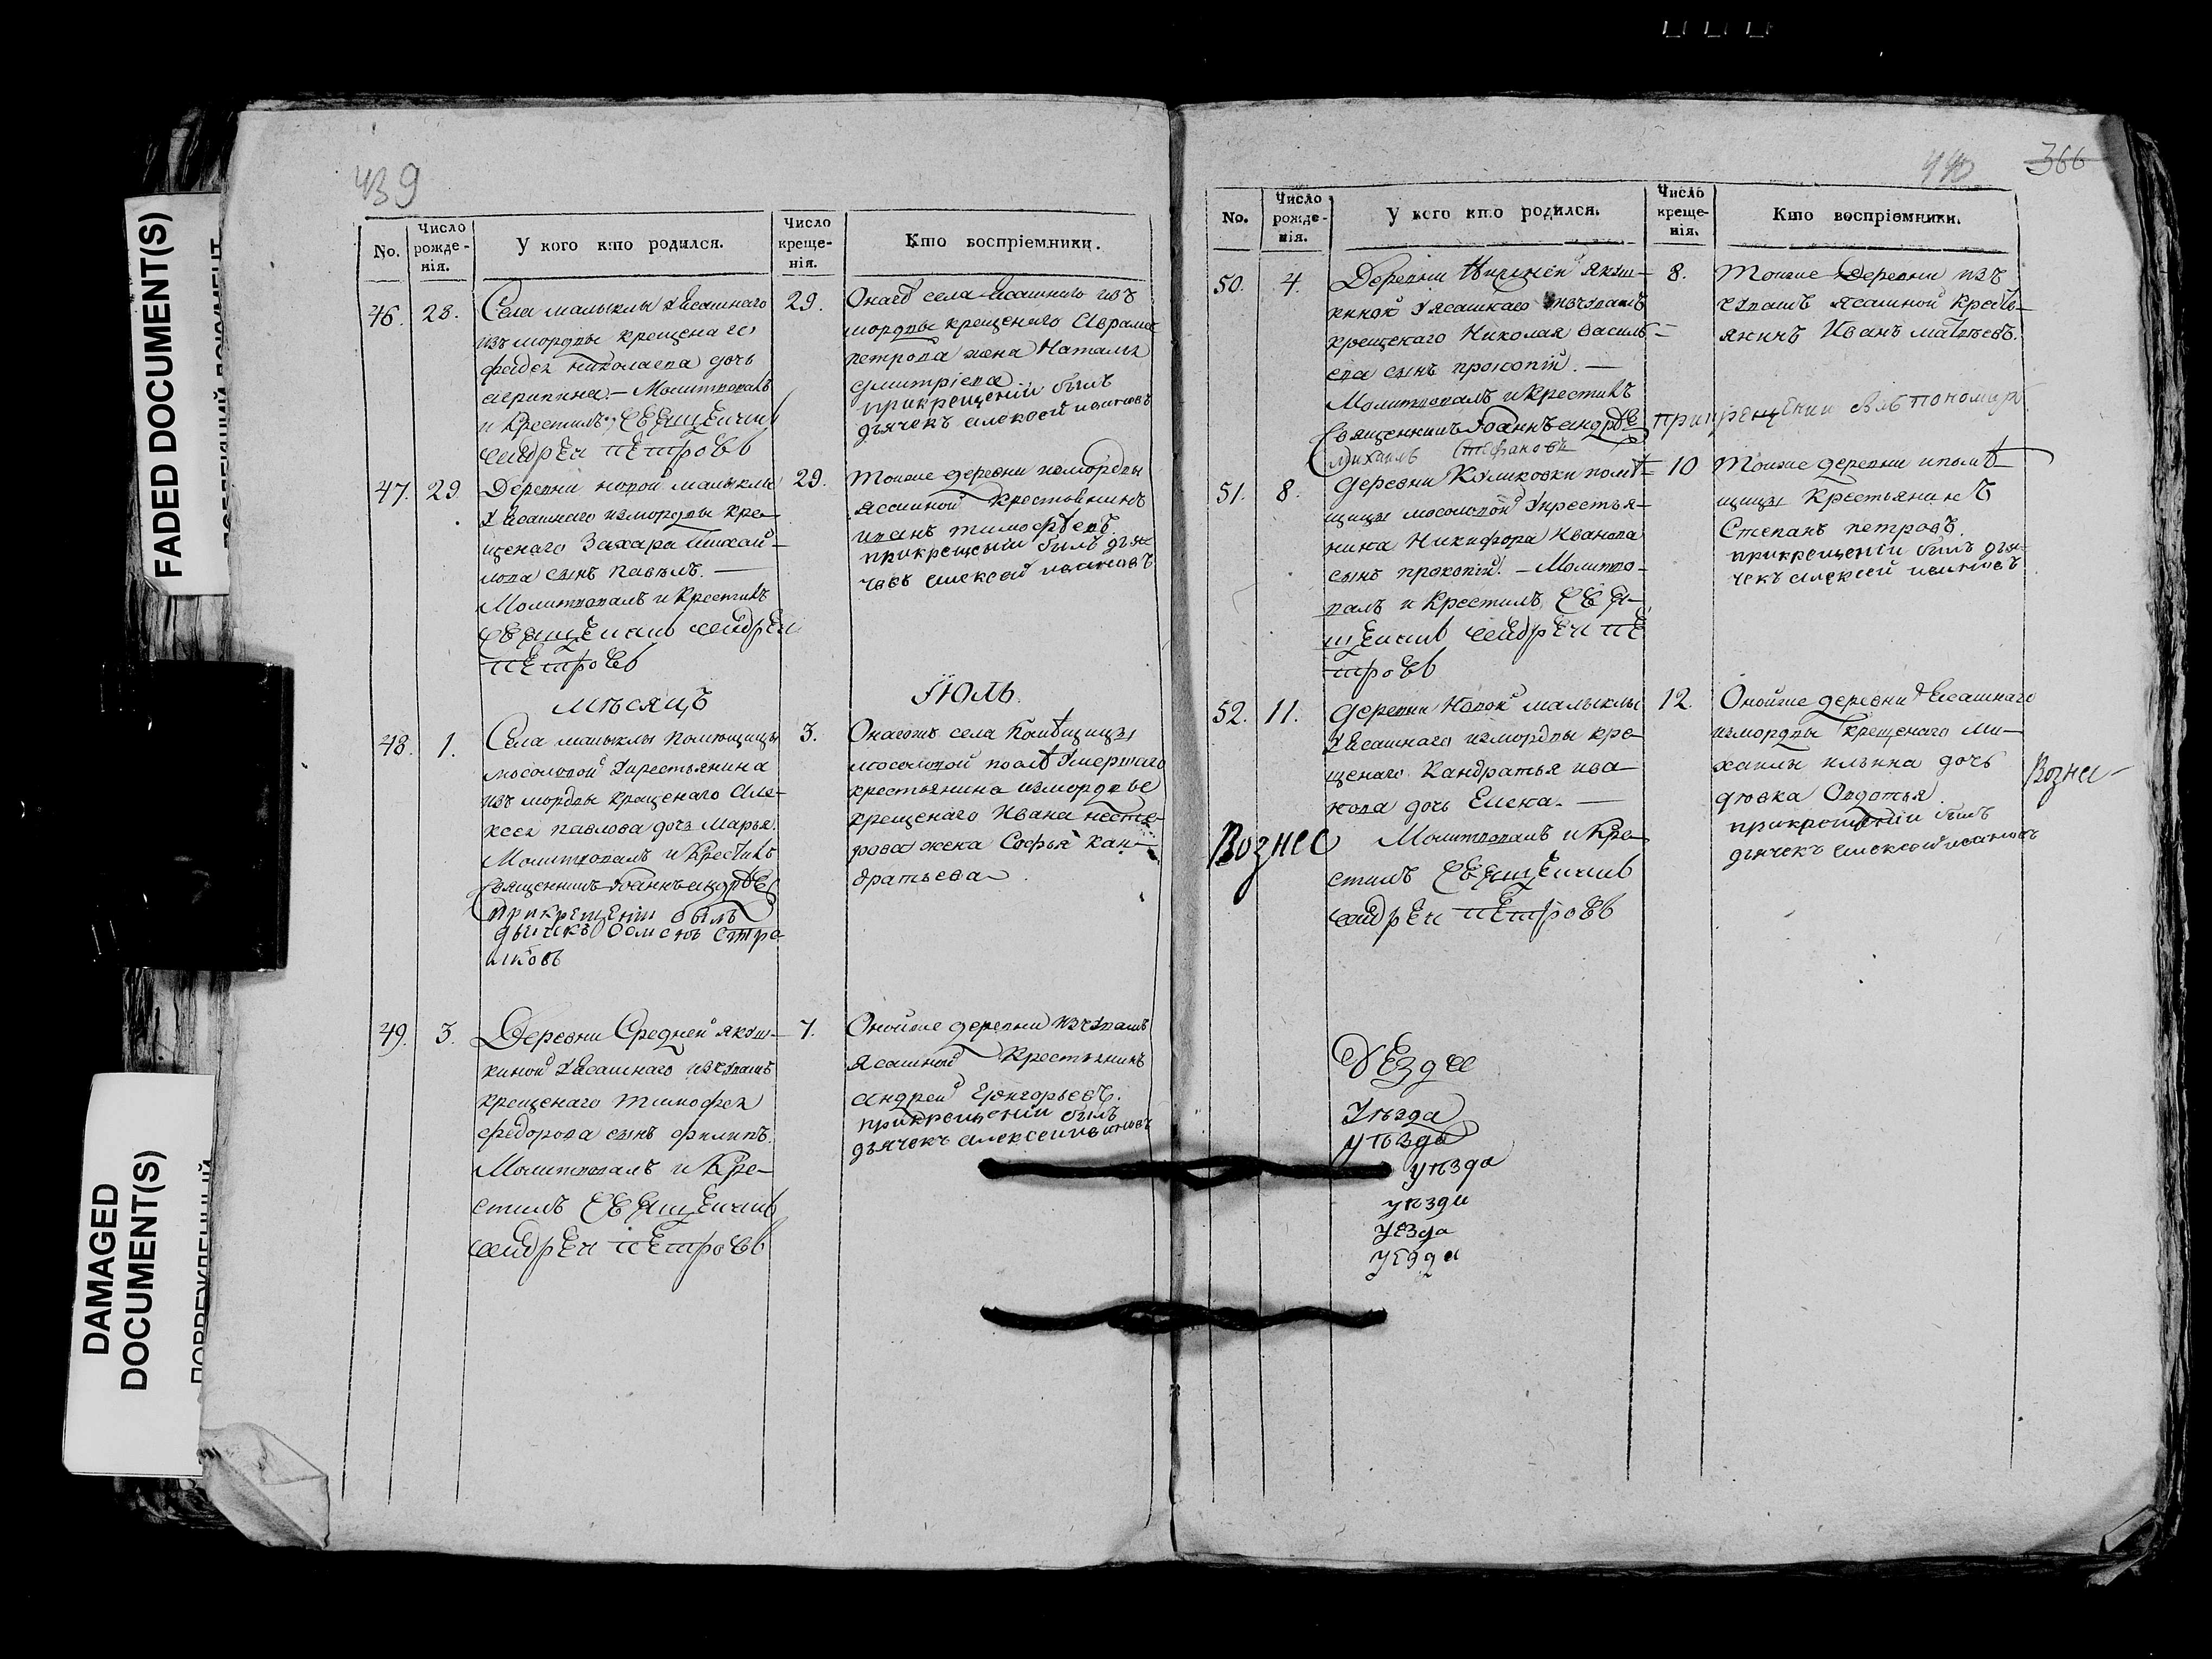 FADED DOCUMENT(S)
DAMAGED
DOCUMENT(S)
439
No.
Число
рожде-
нія.
У кого кто родился.
Число
креще-
нія.
Кто воспріемники.
46.
28.
Села малыклы У Ясашнаго
изъ мордвы крещенаго
Фадея николаева дочь
агрипина. — Молитвовалъ
и Крестилъ СвЯщЕнникъ
андрЕи пЕтровъ
29.
Онагоже села Ясашного изъ
мордвы крещенаго Аврама
петрова жена Наталья
дмитріева
прикрещеніи былъ
дьячекъ алексей ивановъ
47.
29.
Деревни новой малыклы
У Ясашнаго измордвы кре-
щенаго Захара михай-
лова сынъ павелъ. —
Молитвовалъ и Крестилъ
СвЯщЕнникъ андрЕи
пЕтровъ
29.
Тоиже деревни измордвы
ясашной крестьянинъ
иванъ тимофѣевъ.
прикрещеніи былъ дья-
чокъ алексей ивановъ
мѣсяцъ
Іюль.
48.
1.
Села малыклы помѣщицы
мосоловой Укрестьянина
изъ мордвы крещенаго Але-
ксея павлова дочь Марья.
Молитвовалъ и Крестилъ
Священникъ Іоаннъ андрѣев
прикрещеніи былъ
дьячекъ Семенъ Стре-
лковъ
3.
Онагожъ села помѣщицы
мосоловой послѣ Умершаго
крестьянина измордвы
крещенаго Ивана несте-
рова жена Софья Кан-
дратьева
49.
3.
Деревни Средней якуш-
киной У Ясашнаго изчувашъ
крещенаго Тимофея
федорова сынъ филипъ.
Молитвовалъ и Кре-
стилъ СвЯщЕнникъ
андрЕи пЕтровъ
7.
Оноиже деревни изчувашъ
Ясашной Крестьянинъ
андрей Григорьевъ.
прикрещеніи былъ
дьячекъ алексеи ивановъ
440
366
No.
Число
рожде-
нія.
У кого кто родился.
Число
креще-
нія.
Кто воспріемники.
50.
4.
Деревни Нижней якуш-
киной У ясашнаго изчувашъ
крещенаго Николая василь-
ева сынъ прокопій. —
Молитвовалъ и Крестилъ
Священникъ Іоаннъ андрѣев
прикрещении былъ пономарь
Михаилъ Стефановъ
8.
Тоиже Деревни изъ
чувашъ ясашной крестъ-
янинъ Иванъ матвѣевъ.
51.
8.
деревни Куликовки помѣ-
щицы мосоловой Укрестья-
нина Никифора Иванова
сынъ прокопій. — Молитво-
валъ и Крестилъ СвЯ-
щЕнникъ андрЕи пЕ
тровъ
10
Тоиже деревни ипомѣ-
щицы Крестьянинъ
Степанъ петровъ.
прикрещеніи былъ дья-
чекъ алексей ивановъ
52.
11.
деревни Новой малыклы
У Ясашнаго измордвы кре-
щенаго Кандратья ива-
нова дочь Елена. —
Вознес
Молитвовалъ и Кре-
стилъ СвЯщЕнникъ
андрЕи пЕтровъ
12.
Оноиже деревни Ясашнаго
измордвы крещенаго Ми-
хаилы ильина дочь
дѣвка Овдотья.
прикрещеніи былъ
дьячекъ алексей ивановъ
Вознес-
Уѣзда
уѣзда
уѣзда
уѣзди
уезда
уезда